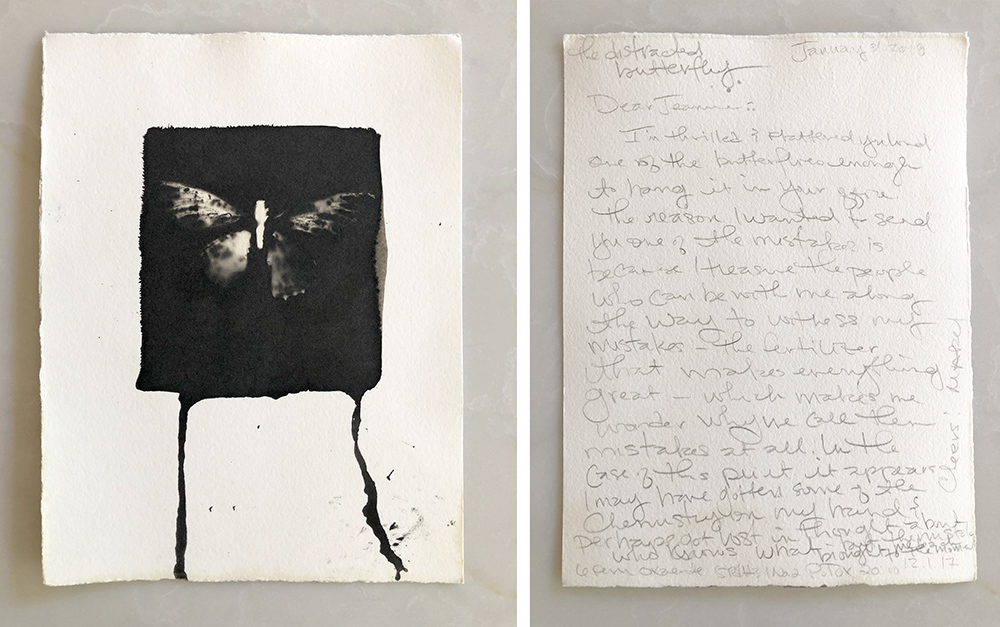 the distracted January 3 2018
butterfly.
Dear Jeanine :
I'm thrilled & flattered you loved
one of the butterflies enough
to hang it in your office
The reason I wanted to send
you one of the mistakes is
because I treasure the people
who can be with me along
the way to witness my
mistakes - the fertilizer
that makes everything
great - which makes me
wonder why we call them
mistakes at all. In the
case of this print it appears
I may have gotten some of the
Chemistry on my hand &
perhaps got lost in thought about
who knows what
12.1.17
Cheers!